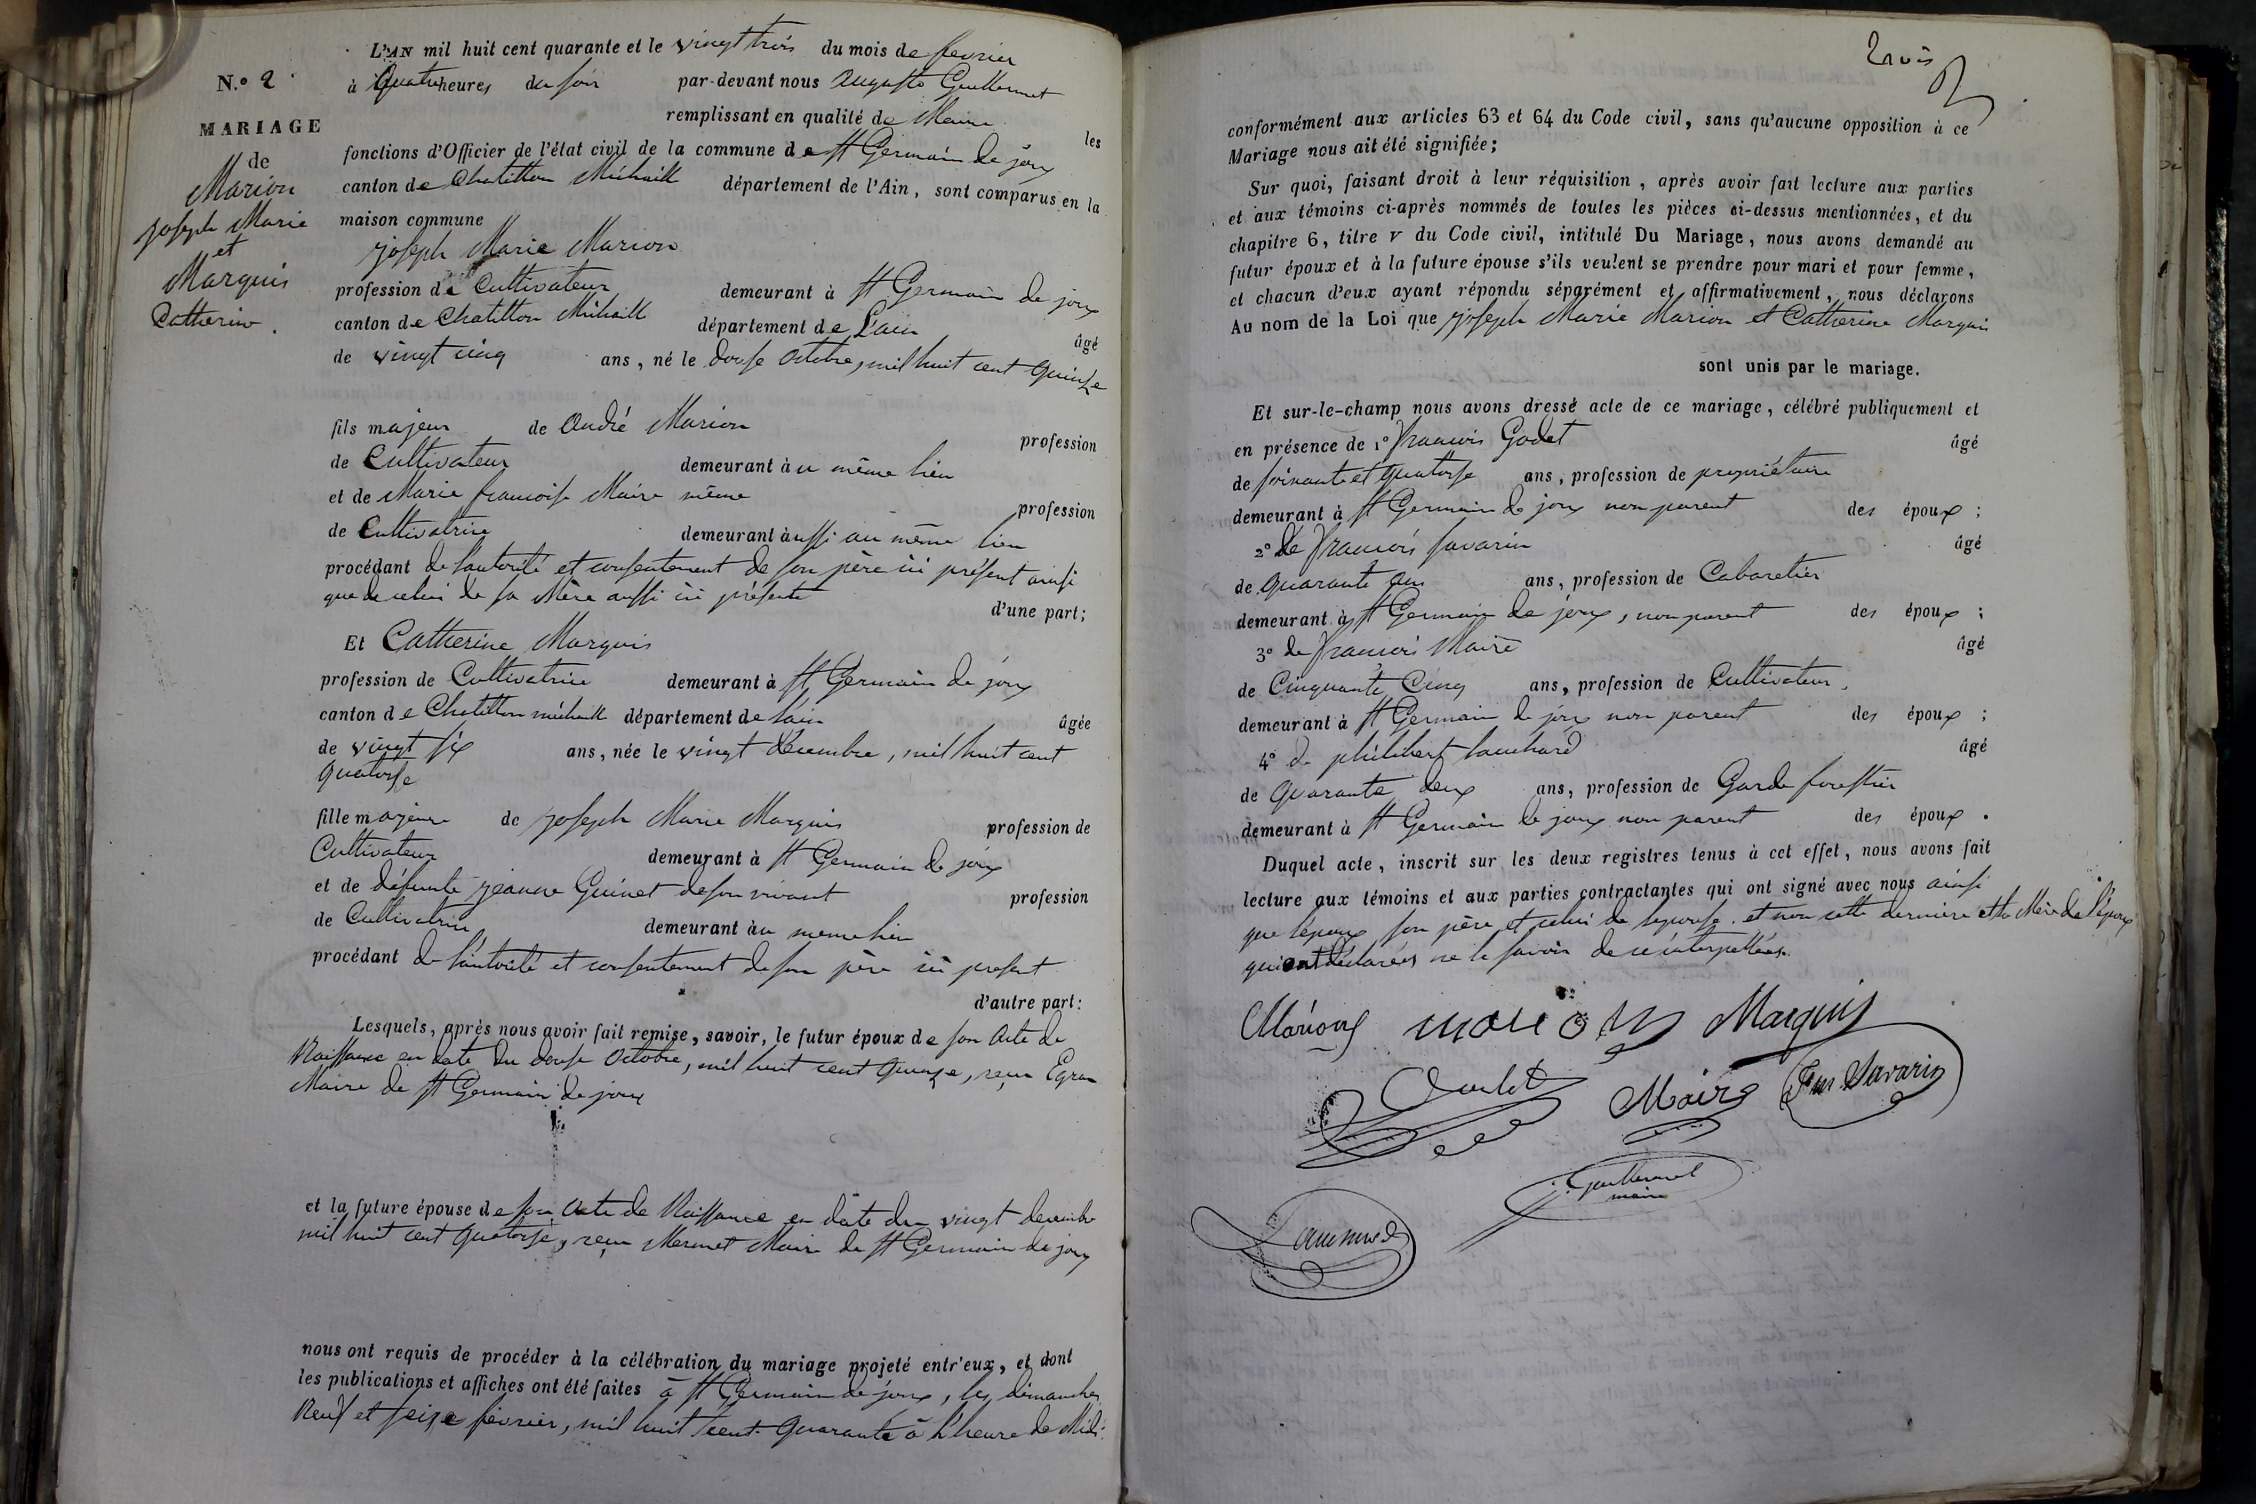 N.° 2
MARIAGE
de
Marion
joseph Marie
et
Marquis
Catherine.
L'AN mil huit cent quarante et le vingt trois du mois de fevrier
à Quatre heures du soir par-devant nous auguste Guillermet
remplissant en qualité de Maire les
fonctions d'Officier de l'état civil de la commune de st Germain de joux
canton de Chatillon Michaille département de l'Ain, sont comparus en la
maison commune
joseph Marie Marion
profession de Cultivateur demeurant à st Germain de joux
canton de Chatillon Michaille département de L'ain âgé
de vingt cinq ans, né le douse octobre, mil huit cent quinze
fils majeur de André Marion profession
de Cultivateur demeurant àu même lieu
et de Marie francoise Maire même profession
de Cultivatrice demeurant àussi au même lieu
procédant de l'autorité et consentement de son père ici présent ainsi
que de celui de sa Mère aussi ici présente d'une part;
Et Catherine Marquis
profession de Cultivatrice demeurant à st Germain de joux
canton de Chatillon michaille département de l'ain âgée
de vingt six ans, née le vingt décembre, mil huit cent
quatorse
fille majeure de joseph Marie Marquis profession de
Cultivateur demeurant à st Germain de joux
et de défunte jeanne Guinet de son vivant profession
de Cultivatrice demeurant àu meme lieu
procédant de l'autorité et consentement de son père ici present
d'autre part:
Lesquels, après nous avoir fait remise, savoir, le futur époux de son acte de
Naissance en date du douse octobre, mil huit cent quinze, reçu Egraz
Maire de st Germain de joux
et la future épouse de son acte de Naissance en date du vingt decembre
mil huit cent quatorse, reçu Mermet Maire de st Germain de joux
nous ont requis de procéder à la célébration du mariage projeté entr'eux, et dont
les publications et affiches ont été faites à st Germain de joux, les dimanches
Neuf et seize février, mil huit cent quarante à l'heure de Midi.
Trois
conformément aux articles 63 et 64 du Code civil, sans qu'aucune opposition à ce
Mariage nous ait été signifiée;
Sur quoi, faisant droit à leur réquisition, après avoir fait lecture aux parties
et aux témoins ci-après nommés de toutes les pièces ci-dessus mentionnées, et du
chapitre 6, titre V du Code civil, intitulé Du Mariage, nous avons demandé au
futur époux et à la future épouse s'ils veulent se prendre pour mari et pour femme,
et chacun d'eux ayant répondu séparément et affirmativement, nous déclarons
Au nom de la Loi que joseph Marie Marion et Catherine Marquis
sont unis par le mariage.
Et sur-le-champ nous avons dressé acte de ce mariage, célébré publiquement et
en présence de 1° francois Godet âgé
de soixante et quatorse ans, profession de propriétaire
demeurant à st Germain de joux non parent des époux;
2° de francois savarin âgé
de quarante ans, profession de Cabaretier
demeurant à st Germain de joux, non parent des époux;
3° de francois Maire âgé
de Cinquante Cinq ans, profession de Cultivateur,
demeurant à st Germain de joux non parent des époux;
4° de philibert âgé
de quarante deux ans, profession de Garde forestier
demeurant à st Germain de joux non parent des époux.
Duquel acte, inscrit sur les deux registres tenus à cet effet, nous avons fait
lecture aux témoins et aux parties contractantes qui ont signé avec nous ainsi
que l'epoux son père et celui de l'epouse. et non cette dernière et la Mère de l'époux
qui ont déclarées ne le savoir de ce interpellées.
Marion marion Marquis
Maire Fois Savarin
Guillermet
maire